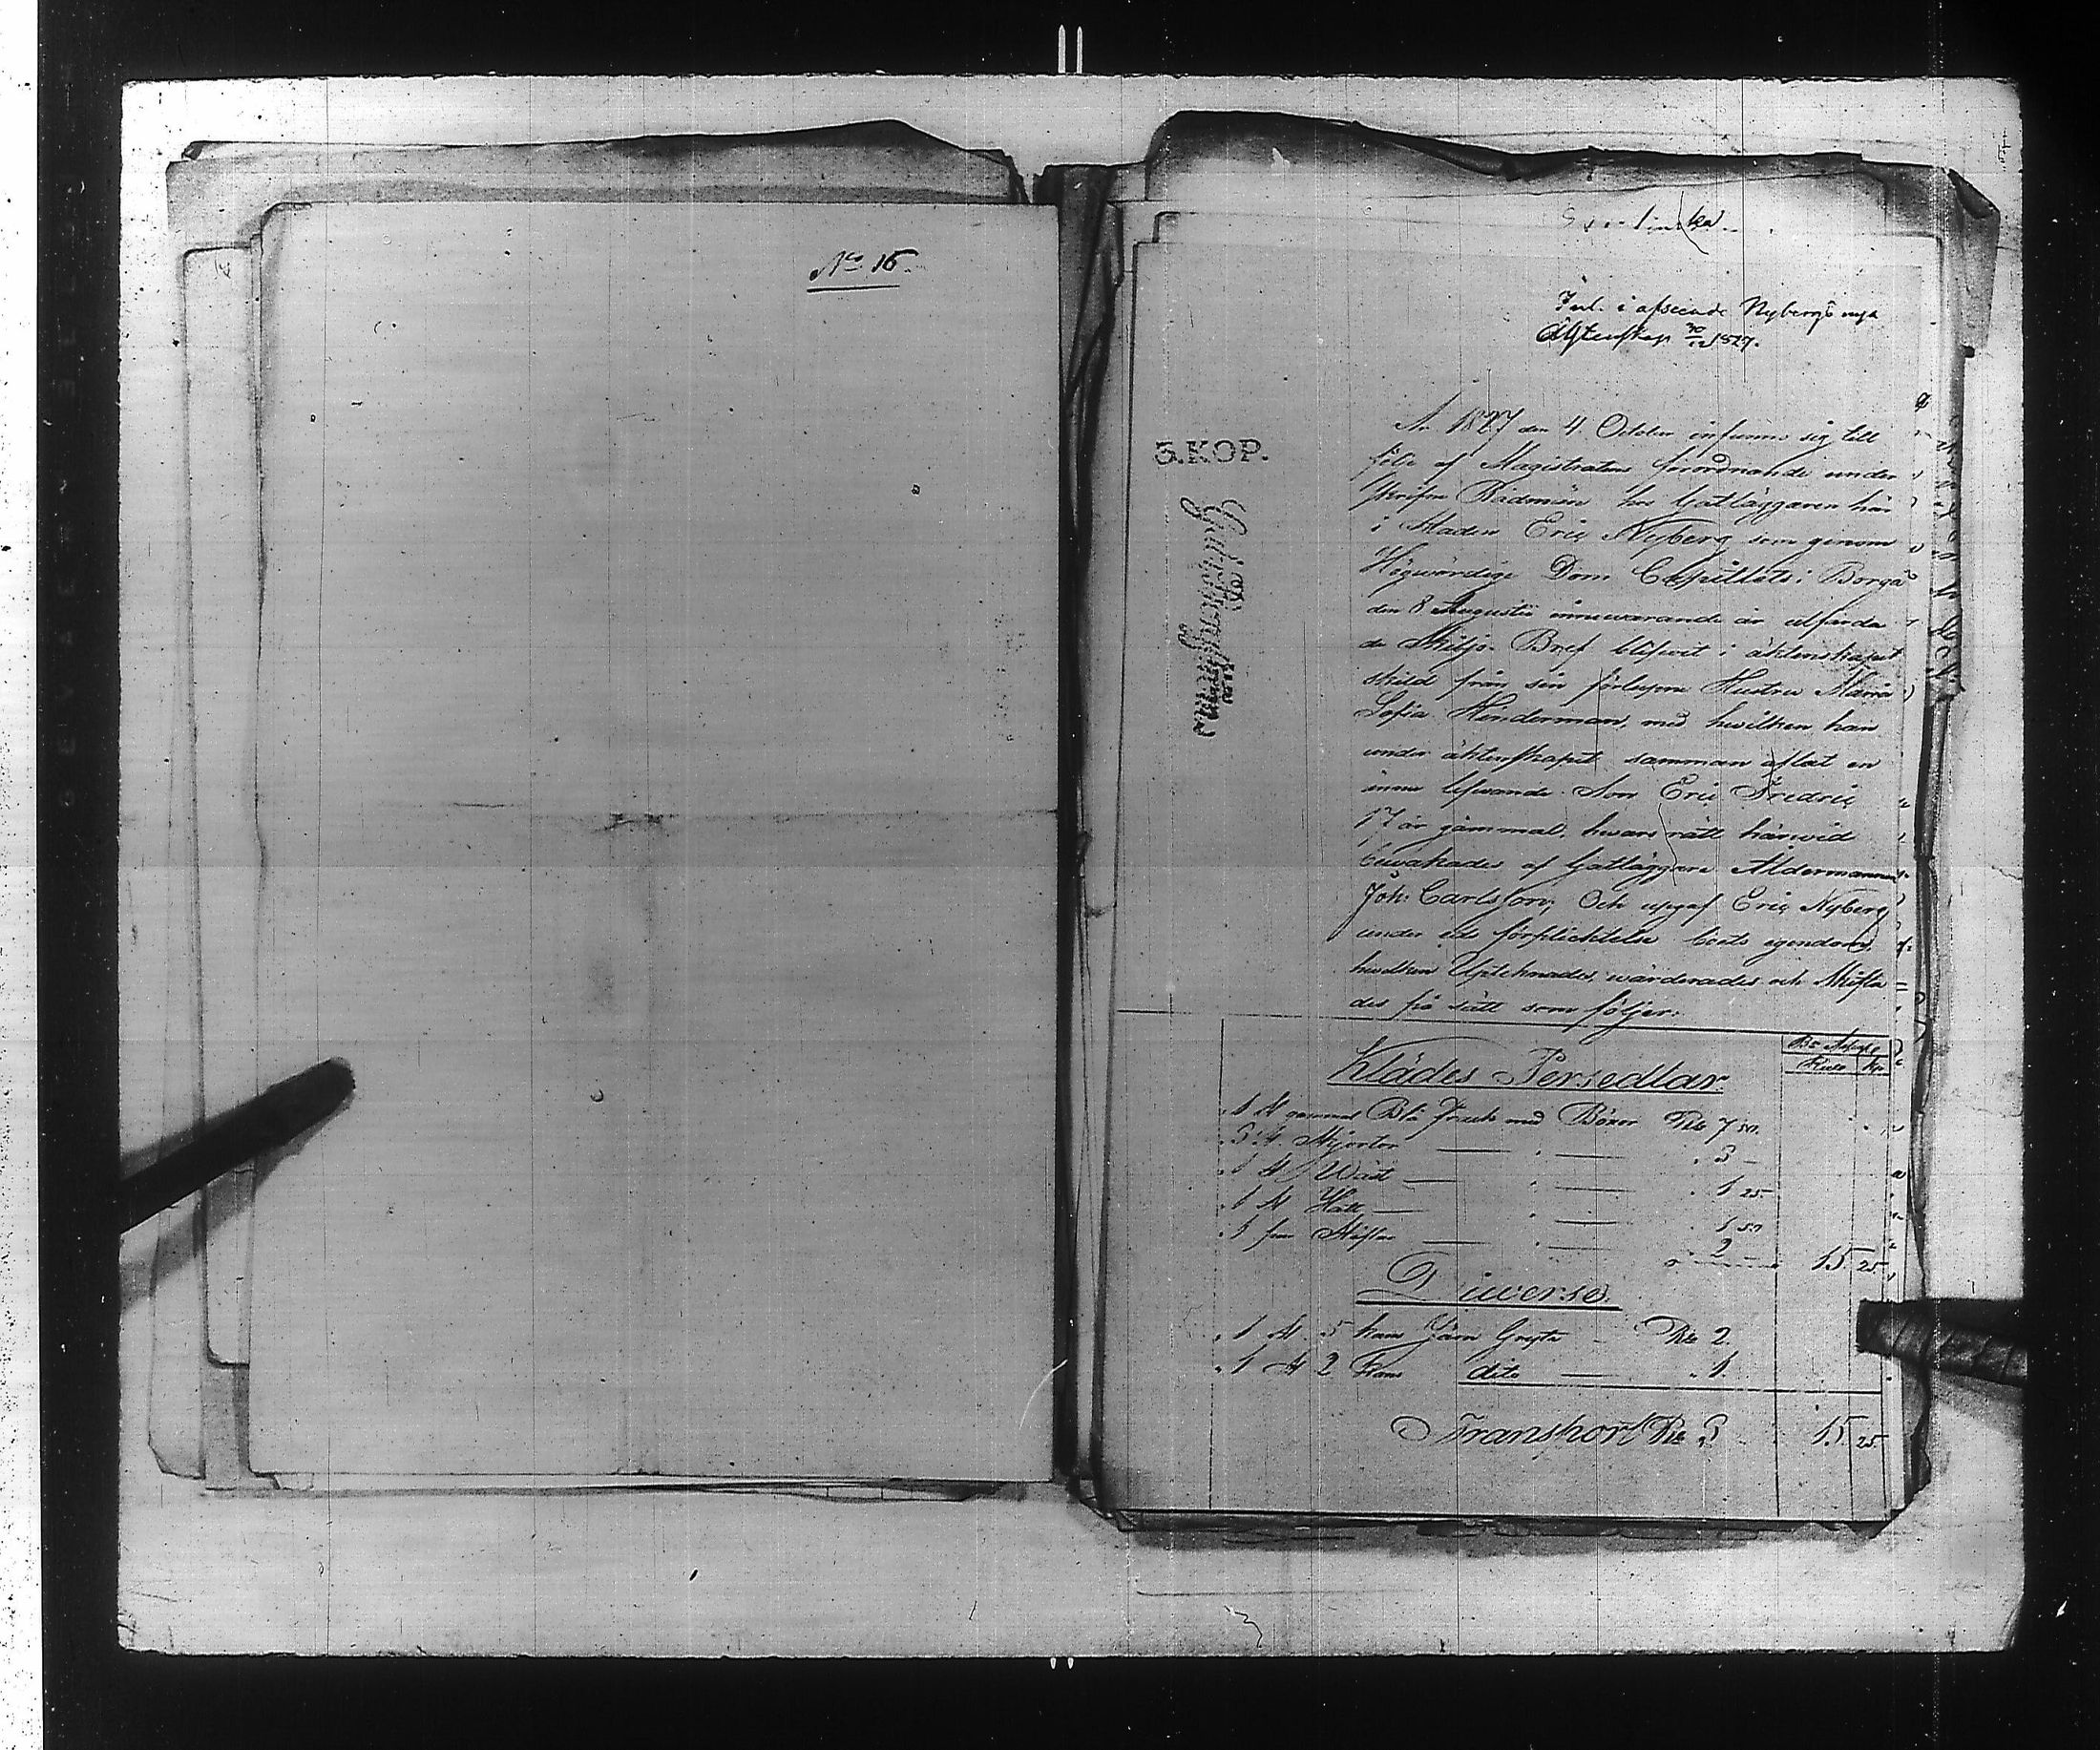 No 16.
Inl. i afseende Nybergs nya
Ägtenskap 30/12 1827.
5.KOP.
År 1827 den 4 October infunno sig till
följe af Magistratens förordnande under
skrifne Rådmän hos Gatläggaren här
i Staden Eric Nyberg som genom
Högwördige Dom Capitlets i Borgå
den 8 Augustii innewarande år utfärda
de Skiljo-Bref blifwit i äktenskapet
skild från sin förlupna Hustru Maria
Sofia Hinderman, med hwilken han
under äktenskapet samman aflat en
ännu lefwande Son Eric Fredric
17 år gammal, hwars rätt härwid
bewakades af Gatläggare Åldermannen
Joh: Carlsson; Och upgaf Eric Nyberg
under eds förplicktelse boets egendom
hwilken Upteknades, wärderades och Skifta
des på sätt som följer:
Bo Assign
Rub. Kop
Klädes Persedlar
1 St gammal Blå Frack med Böxor Rub 7 50.
3 St. Skjortor — " — " 3 —
1 St Wäst — " — " 1 25
1 St Hatt — " — " 1 50
1 par Stöflar — " — 2 — 15. 25.
Diverse.
1 St. 5 kans Järn Gryta — Rub 2.
1 St 2 Kans dito — " 1.
Transport Rub 3 15. 25